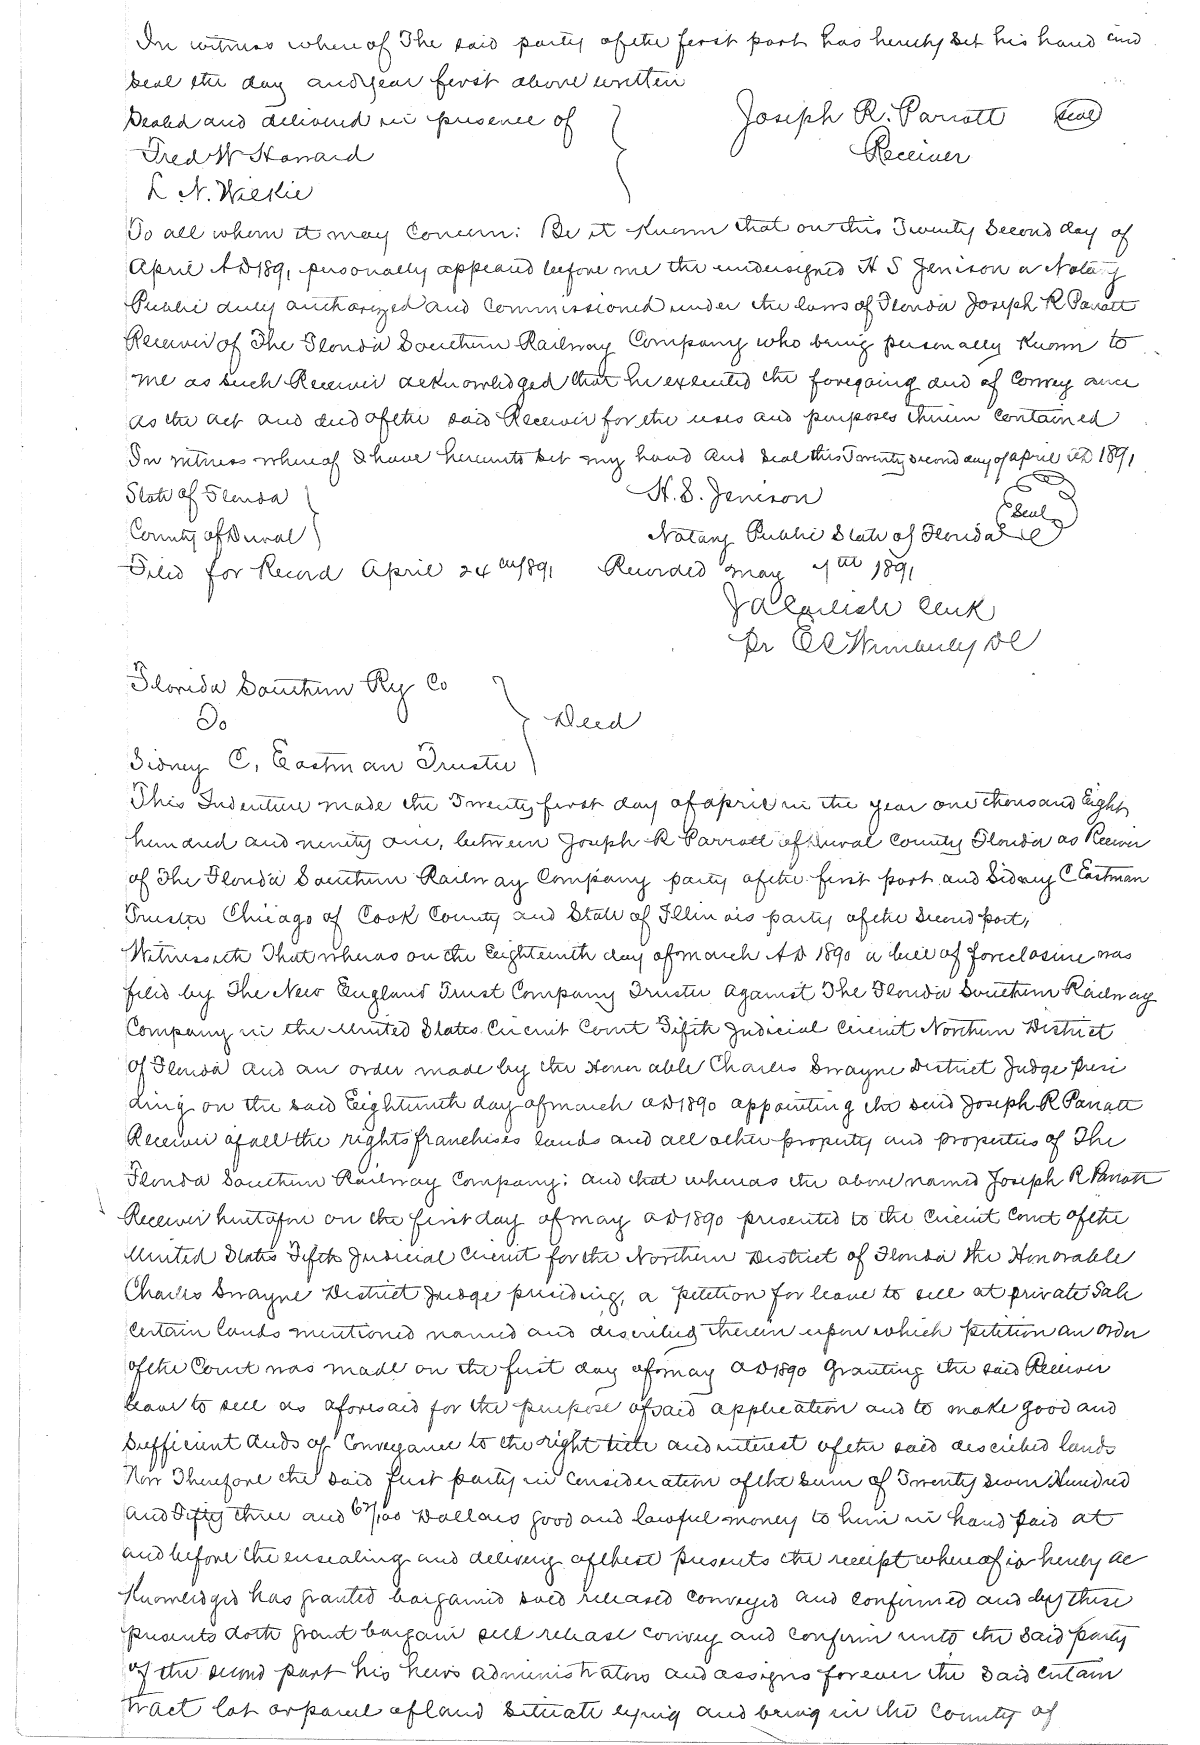 In witness where of The said party of the first part has hereby set his hand and
seal the day and year first above written
Sealed and delivered in presence of
Joseph R. Parrott (Seal)
Fred W Howard
Receiver
L. N. Wilkie
To all whom it may Concern: Be it Known that on this Twenty Second day of
April AD 1891 personally appeared before me the undersigned H S Jenison a Notary
Public duly authorized and Commissioned under the laws of Florida Joseph R Parrott
Receiver of The Florida Southern Railway Company who being personally Known to
me as such Receiver acknowledged that he executed the foregoing deed of Convey ance
as the act and deed of the said Receiver for the uses and purposes therein Contained
In witness whereof I have hereunto set my hand and seal this Twenty second day of April AD 1891
State of Florida
H. S. Jenison
County of Duval
Notary Public State of Florida
Seal
Filed for Record April 24th 1891 Recorded May 7th 1891
Clerk
Pr Wimberly DC
Florida Southern Ry Co
To
Deed
Sidney C. Eastman Trustee
This Indenture made the Twenty first day of April in the year one thousand Eight
hundred and ninety one, between Joseph R Parrott of Duval County Florida as Receiver
of The Florida Southern Railway Company party of the first part and Sidney C Eastman
Trustee Chicago of Cook County and State of Illinois party of the second part,
Witnesseth That whereas on the Eighteenth day of March AD 1890 a bill of foreclosure was
filed by The New England Trust Company Trustee against The Florida Southern Railway
Company in the United States Circuit Court Fifth Judicial Circuit Northern District
of Florida and an order made by the Honor able Charles Swayne District Judge presi
ding on the said Eighteenth day of March AD 1890 appointing the said Joseph R Parrott
Receiver of all the rights franchises lands and all other property and properties of The
Florida Southern Railway Company; and that whereas the above named Joseph R Parrott
Receiver heretofore on the first day of May AD 1890 presented to the Circuit Court of the
United States Fifth Judicial Circuit for the Northern District of Florida the Honorable
Charles Swayne District Judge presiding, a petition for leave to sell at private Sale
Certain lands mentioned named and described therein upon which petition an order
of the Court was made on the first day of May AD 1890 Granting the said Receiver
leave to sell as aforesaid for the purpose of said application and to make good and
sufficient deeds of Conveyance to the right title and interest of the said described lands
Now Therefore the said first party in Consideration of the sum of Twenty seven Hundred
and Fifty three and 67/100 Dollars good and lawful money to him in hand paid at
and before the ensealing and delivery of these presents the receipt where of is hereby ac
Knowledged has granted bargained sold released Conveyed and Confirmed and by these
presents doth grant bargain sell release Convey and Confirm unto the said party
of the second part his heirs administrators and assigns forever the said Certain
tract lot or parcel of land situate lying and being in the County of